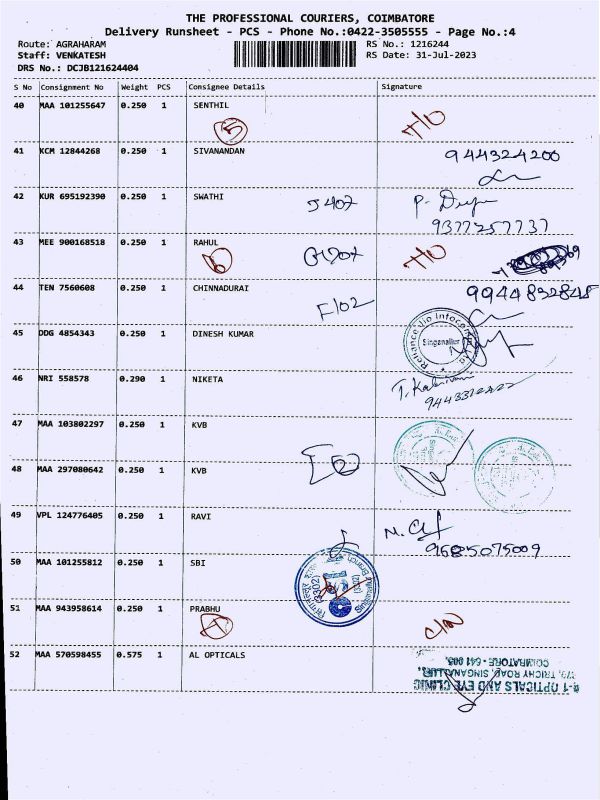 THE PROFESSIONAL COURIERS, COIMBATORE
Delivery Runsheet - PCS - Phone No.:0422-3505555 - Page No.:4
Route: AGRAHARAM RS No.: 1216244
Staff: VENKATESH RS Date: 31-Jul-2023
DRS No.: DCJB121624404
S No Consignment No Weight PCS Consignee Details Signature
40 MAA 101255647 0.250 1 SENTHIL
5
41 KCM 12844268 0.250 1 SIVANANDAN 944324200
42 KUR 695192390 0.250 1 SWATHI J407 P.
9377257737
43 MEE 900168518 0.250 1 RAHUL
6 G1207
44 TEN 7560608 0.250 1 CHINNADURAI 9944832848
F102
45 DDG 4854343 0.250 1 DINESH KUMAR Reliance Jio Infocomm Singanallur
46 NRI 558578 0.290 1 NIKETA
47 MAA 103802297 0.250 1 KVB
48 MAA 297080642 0.250 1 KVB 2
49 VPL 124776405 0.250 1 RAVI
9685075009
50 MAA 101255812 0.250 1 SBI
51 MAA 943958614 0.250 1 PRABHU
52 MAA 570598455 0.575 1 AL OPTICALS
A-1 OPTICALS AND EYE CLINIC
TRICHY ROAD, SINGANALLUR,
COIMBATORE - 641 005.